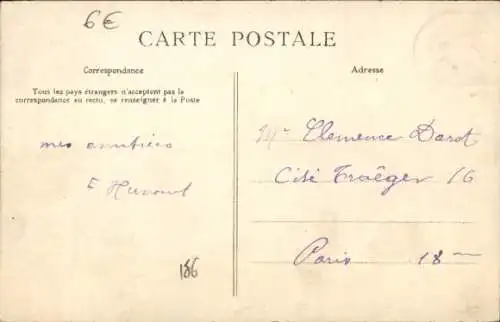 6€
CARTE POSTALE
Correspondance
Tous les pays étrangers n'acceptent pas la
correspondance au recto, se renseigner à la Poste
mes amitiés
E
186
Adresse
Clemence Darot
Cité Traëger 16
Paris 18